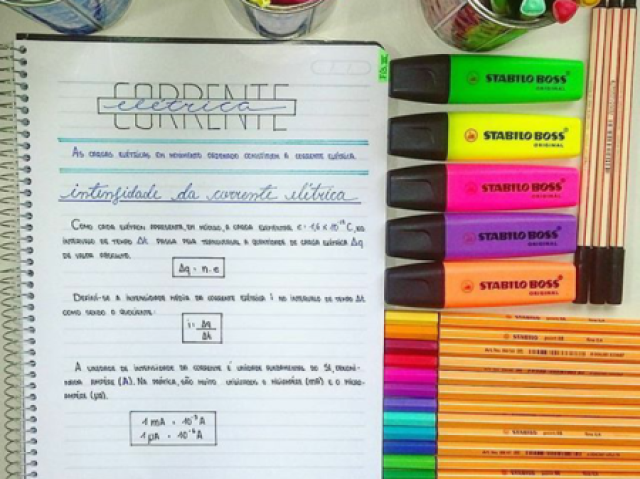 CORRENTE
elétrica
As cargas elétricas em movimento ordenado constituem a corrente elétrica.
intensidade da corrente elétrica
Como cada elétron apresenta, em módulo, a carga elementar e = 1,6 x 10⁻¹⁹ C, no
intervalo de tempo Δt passa pela transversal a quantidade de carga elétrica Δq
de valor absoluto.
Δq = n.e
Defini-se a intensidade média da corrente elétrica i no intervalo de tempo Δt
como sendo o quociente:
i = Δq
Δt
A unidade de intensidade da corrente é unidade fundamental do SI, denomi-
nada ampère (A). Na prática, são muito utilizados o miliampère (mA) e o micro-
ampère (μA).
1 mA = 10⁻³ A
1 μA = 10⁻⁶ A
STABILO BOSS
ORIGINAL
STABILO BOSS
ORIGINAL
STABILO BOSS
ORIGINAL
STABILO BOSS
ORIGINAL
STABILO BOSS
ORIGINAL